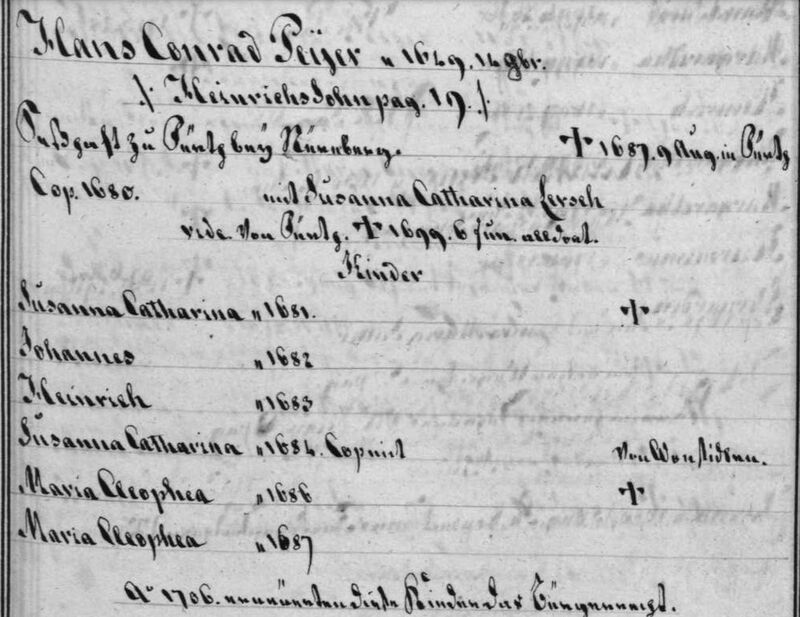 Hans Conrad Peijer „ 1649. 14 9br.
/: Heinrichs Sohn pag. 19. :/
Seßhaft zu Püntz beÿ Nürnberg. † 1687. 9 Aug. in Püntz
Cop. 1680. mit Susanna Catharina Lersch
vide. von Püntz. † 1699. 6 Jun. alldort.
Kinder
Susanna Catharina „ 1681. †
Johannes „ 1682
Heinrich „ 1683
Susanna Catharina „ 1684. Cop mit von Wonsidlen.
Maria Cleophea „ 1686 †
Maria Cleophea „ 1687
Aº 1706. erneüerten diese Kinder das Bürgerrecht.